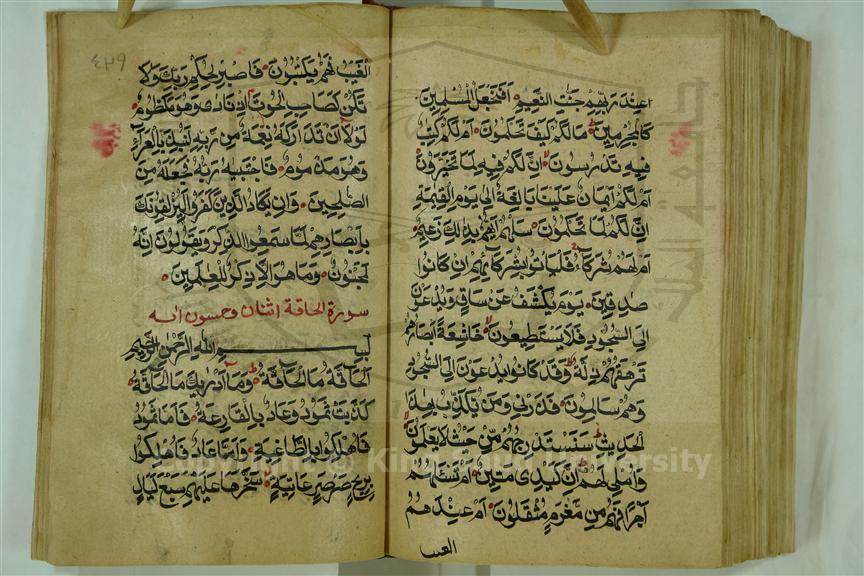 عند ربهم جنت النعيم افنجعل المسلمين
كالمجرمين مالكم كيف تحكمون ام لكم كتب
فيه تدرسون ان لكم فيه لما تخيرون
ام لكم ايمان علينا بالغة الى يوم القيمة
ان لكم لما تحكمون سلهم ايهم بذلك زعيم
ام لهم شركاء فلياتوا بشركائهم ان كانوا
صدقين يوم يكشف عن ساق ويدعون
الى السجود فلا يستطيعون خاشعة ابصارهم
ترهقهم ذلة وقد كانوا يدعون الى السجود
وهم سالمون فذرنى ومن يكذب بهذا
الحديث سنستدرجهم من حيث لا يعلمون
واملى لهم ان كيدى متين ام تسئلهم
اجرا فهم من مغرم مثقلون ام عندهم
الغيب
٤٣٩
الغيب فهم يكتبون فاصبر لحكم ربك ولا
تكن كصاحب الحوت اذ نادى وهو مكظوم
لولا ان تداركه نعمة من ربه لنبذ بالعراء
وهو مذموم فاجتبيه ربه فجعله من
الصلحين وان يكاد الذين كفروا ليزلقونك
بابصارهم لما سمعوا الذكر ويقولون انه
لمجنون وما هو الا ذكر للعلمين
سورة الحاقة اثنان وخمسون ايه
بسم الله الرحمن الرحيم
الحاقة ما الحاقة وما ادريك ما الحاقة
كذبت ثمود وعاد بالقارعة فاما ثمود
فاهلكوا بالطاغية واما عاد فاهلكوا
بريح صرصر عاتية سخرها عليهم سبع ليال
Copyright © King Saud University